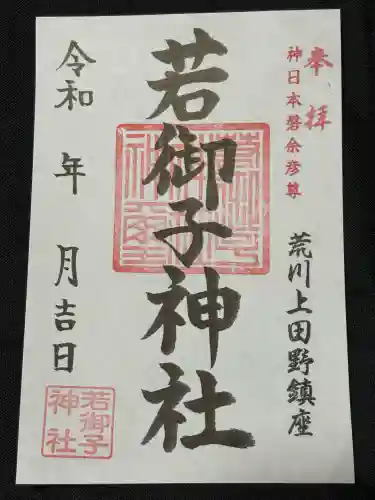 奉拝
神日本磐余彦尊
荒川上田野鎮座
若御子神社
令和　年　月吉日
若御子
神社